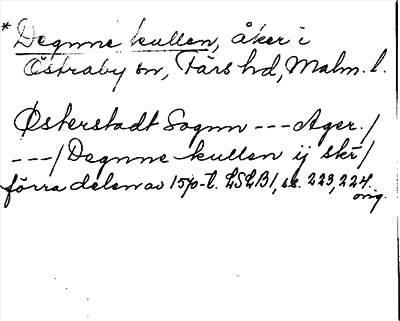 * Degnne kullen, åker i
Östraby sn, Färs hd, Malm. l.
Østerstadt Sognn --- Ager. /
--- / Degnne kullen ij skr /
förra delen av 1570-t. LSLB1, s. 223, 224.
orig.